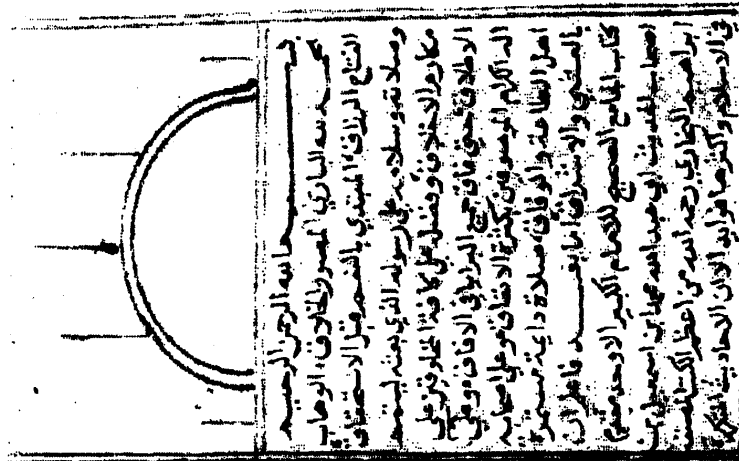 بسم الله الرحمن الرحيم
الحمد لله الباري المصور الخلاق، الوهاب
الفتاح الرزاق، المبتدي بالنعم قبل الاستحقاق
وصلاته وسلامه على رسوله الذي بعثه ليتمم
مكارم الاخلاق وفضله على كافة المخلوقين على
الاطلاق حتى فاق جميع البرايا في الافاق، وعلى
اله الكرام الموصوفين بكثرة الانفاق، وعلى اصحابه
اهل الطاعة والوفاق، صلاة دايمة مستمرة
بالعشي والاشراق، اما بعد فاعلم ان
كتاب الجامع الصحيح للامام الكبير الاوحد مقدم
اصحاب الحديث ابي عبد الله محمد بن اسمعيل بن
ابراهيم البخاري رحمه الله من اعظم الكتب المصنفة
في الاسلام واكثرها فوايد الا ان الاحاديث المتكررة